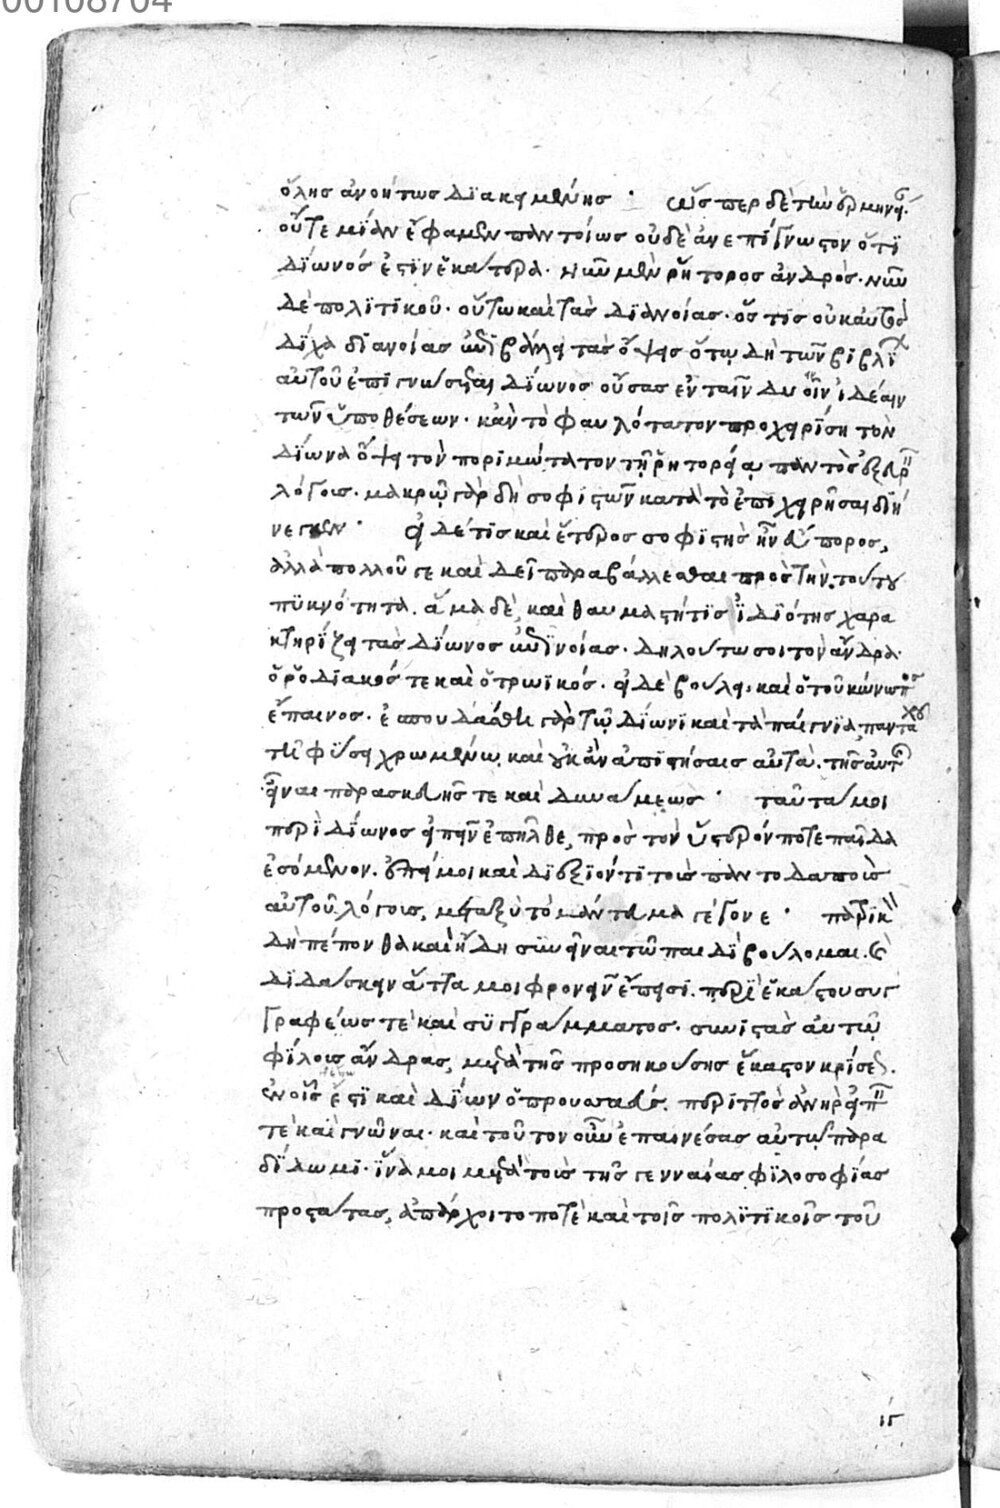 00108704
ὅλης ἀνοήτως διακειμένης · ὥσπερ δὲ τὴν ἑρμηνεί
οὔτε μίαν ἔφαμεν παντοίως οὐδὲ ἀνεπίγνωστον ὅτι
δίωνός ἐστιν ἑκατέρα · νῦν μὲν ῥήτορος ἀνδρός · νῦν
δὲ πολιτικοῦ · οὕτω καὶ τὰς διανοίας · ὅστις οὐκ αὐτὸς
δίχα διανοίας
αὐτοῦ ἐπιγνώσεται δίωνος οὔσας ἐν ταῖν δυοῖν ἰδέαιν
τῶν ὑποθέσεων · κἂν τὸ φαυλότατον προχειρίση τὸν
δίωνα ὄψει τὸν ποριμώτατον τῇ ῥητορείᾳ παντὸς εὑρεῖν
λόγους · μακρῷ γὰρ δὴ σοφιστῶν κατὰ τὸ ἐπιχειρῆσαι διή
νεγκεν · εἰ δέ τις καὶ ἕτερος σοφιστὴς ἦν εὔπορος,
ἀλλὰ πολλοῦ γε καὶ δεῖ παραβάλλεσθαι πρὸς τὴν τούτου
πυκνότητα. ἅμα δὲ καὶ θαυμαστή τις ἰδιότης χαρα
κτηρίζει τὰς δίωνος εὐδινοίας · δηλούτω σοι τὸν ἄνδρα ·
ὁ ῥοδιακός τε καὶ ὁ τρωϊκός · εἰ δὲ βούλει, καὶ ὁ τοῦ κώνωπος
ἔπαινος · ἐσπουδάσθη γὰρ τῷ δίωνι καὶ τὰ παίγνια πανταχοῦ
τῇ φύσει χρωμένῳ. καὶ οὐκ ἂν ἀπιστήσαις αὐτὰ τῆς αὐτῆς
εἶναι παρασκευῆς τε καὶ δυνάμεως · ταῦτά μοι
περὶ δίωνος εἰπεῖν ἐπῆλθε, πρὸς τὸν ὕστερόν ποτε παῖδα
ἐσόμενον. ἐπεί μοι καὶ διεξιόντι τοῖς παντοδαποῖς
αὐτοῦ λόγοις, μεταξὺ τὸ μάντευμα γέγονε · πατρικὸν
δὴ πέπονθα καὶ ἤδη συνεῖναι τῷ παιδὶ βούλομαι. καὶ
διδάσκειν ἅττα μοι φρονεῖν ἔπεισι. περὶ ἑκάστου συγ
γραφέως τὲ καὶ συγγράμματος · συνιστὰς αὐτῷ
φίλους ἄνδρας, μετὰ τῆς προσηκούσης ἕκαστον κρίσεως.
ἐν οἷς ἔστι καὶ δίων ὁ προυσαεύς. περιττὸς ἀνὴρ εἰπεῖν
τὲ καὶ γνῶναι · καὶ τοῦτον οὖν ἐπαινέσας αὐτῷ παρα
δίδωμι · ἵνα μοι μετὰ τοὺς τῆς γενναίας φιλοσοφίας
προστάτας, ἀπάρχοιτό ποτε καὶ τοῖς πολιτικοῖς τοῦ
ις